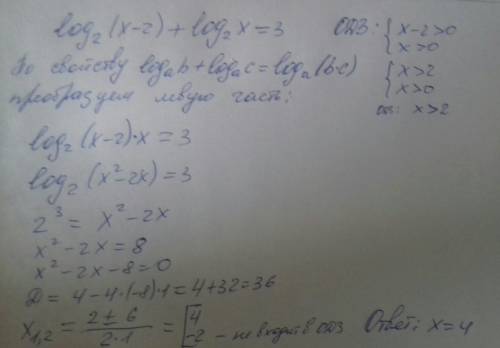 log₂(x-2) + log₂x = 3
ОДЗ: { x-2>0
x>0
По свойству logₐb + logₐc = logₐ(b·c)
преобразуем левую часть:
{ x>2
x>0
x>2
log₂(x-2)·x = 3
log₂(x²-2x) = 3
2³ = x²-2x
x²-2x = 8
x²-2x-8=0
D = 4-4·(-8)·1 = 4+32 = 36
x₁,₂ = (2±6)/(2·1) = [ 4
-2 - не входит в ОДЗ
Ответ: x=4